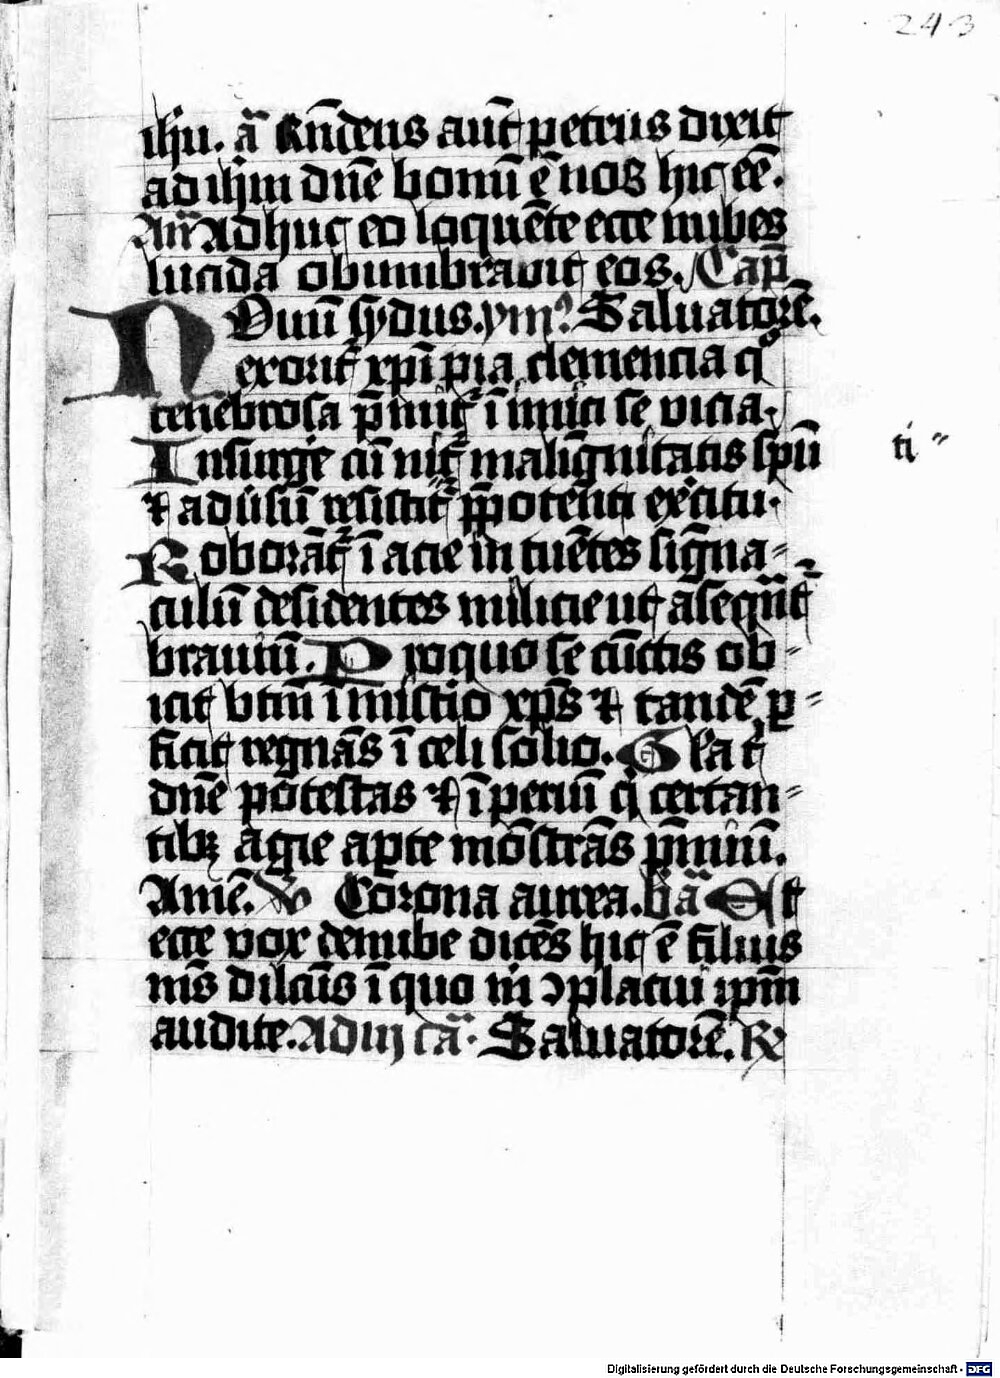 243
ih̄u. ā Rn̄dens aūt petrus dixit
ad ih̄m dn̄e bonū ē nos hic eē.
Adhuc eo loquēte ecce nubes
lucida obumbrauit eos. Cap̄
Nouū sydus. ymꝰ. Saluatorē.
exorit̄ xp̄i pia clemencia qͦ
tenebrosa p̄mit̄ ī imici se vicia.
Insurge cū nit̄ malīgnitatis spū
ti
⁊ adūsū resistit̄ p̄potenti exc̄itu.
Roborāt̄ ī acie intuētes sīgna⸗
culū desidentes milicie ut aseqūt̄
brauiū. Pro quo se cūctis ob⸗
icit vtiū īmistio xp̄s ⁊ tandē ꝑ⸗
ficit regnās ī celi solio. Gl̄a t̄
dn̄e potestas ⁊ īperiū q̄ certan⸗
tibꝫ agie aꝑte mōstrās p̄miū.
Amē. V̄ Corona aurea. bā
ecce vox de nube dicēs hic ē filius
m̄s dil̄cūs ī quo m̄ ꝯplacui ip̄m
audite. Ad iij cā. Saluatorē. R̄
Digitalisierung gefördert durch die Deutsche Forschungsgemeinschaft - DFG